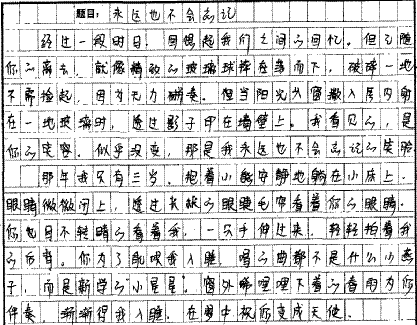 题目：永远也不会忘记
经过一段时日，回想起我们之间的回忆。但已随
你的离去，就像精致的玻璃球摔在落而下，破碎一地
不需捡起，因为无力。但当阳光从窗撒入屋内射
在一地玻璃时，透过影子印在墙壁上。我看见的，是
你的笑容。似乎没变，那是我永远也不会忘记的笑脸
那年我只有三岁。抱着小熊安静地躺在小床上。
眼睛微微闭上，透过长长的眼睫毛窄看着你的眼睛。
你也目不转睛的看着我，一只手伸过来，轻轻拍着我
的后背。你为了哄我入睡，唱的曲都不是什么小燕
子，而是新学的小星星。窗外哗哩哩下着的春雨为你
伴奏，渐渐得我入睡，在梦中板你变成天使。